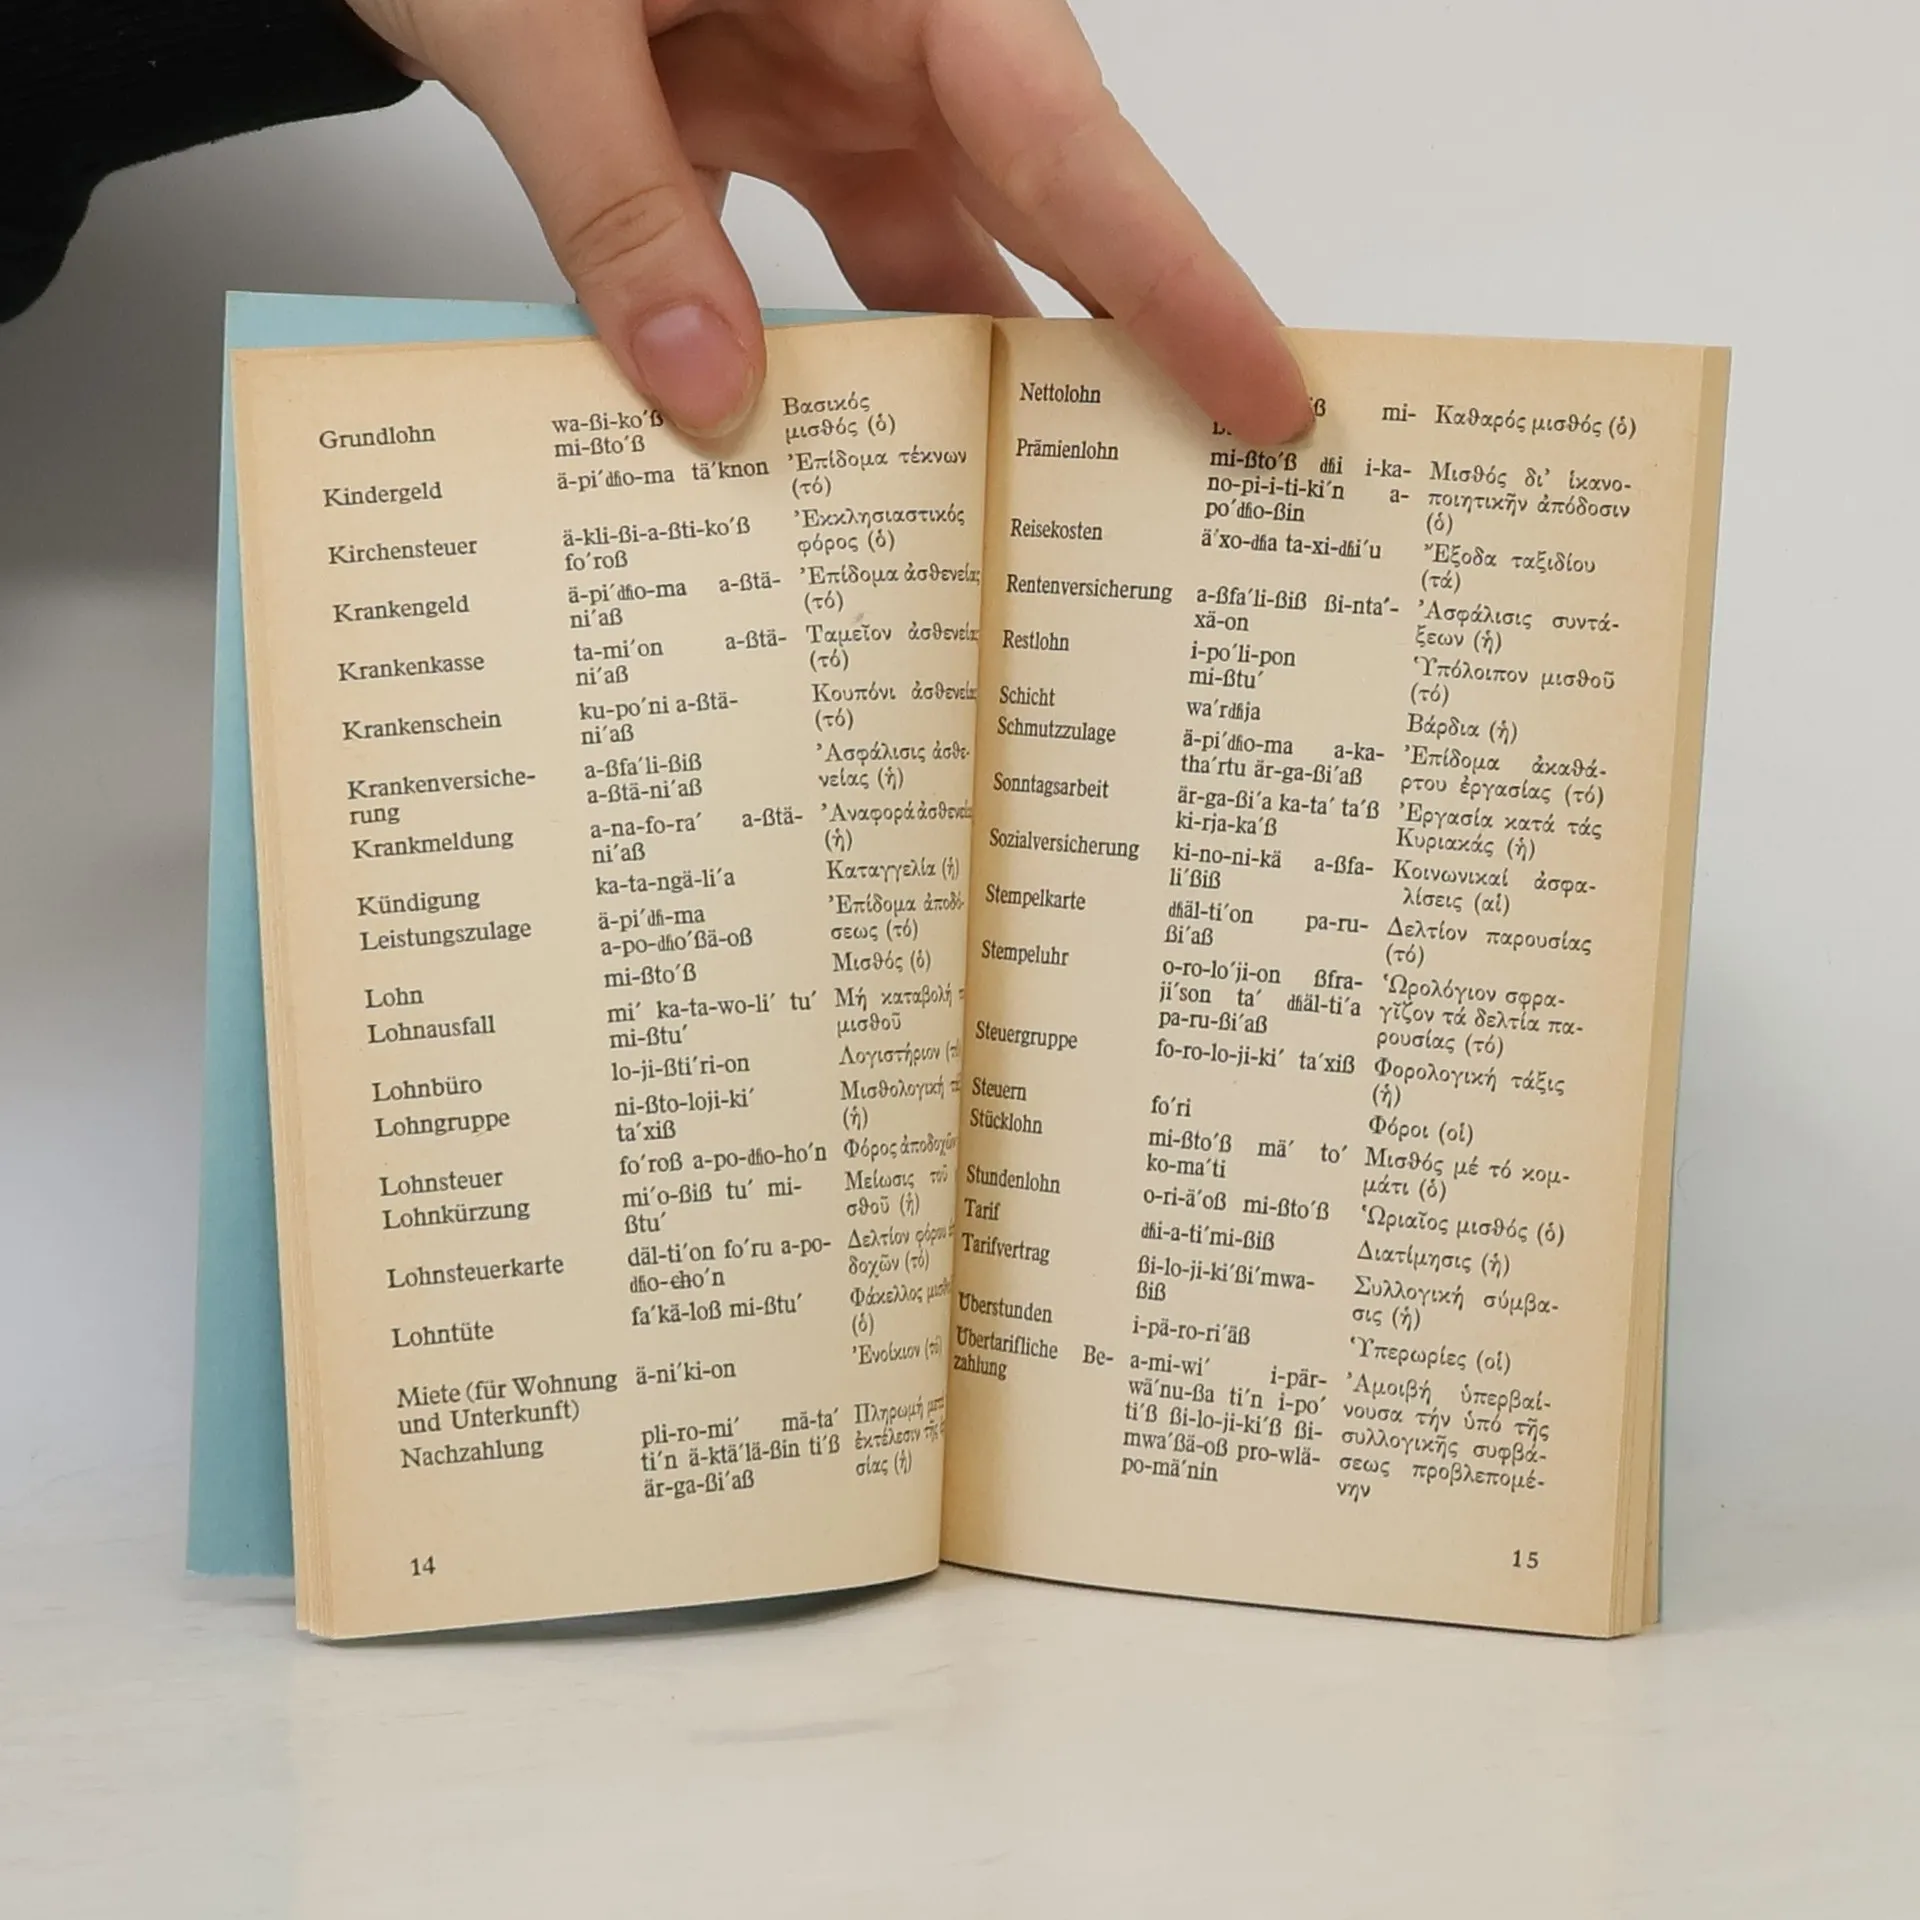 Grundlohn wa-ßi-ko′ß Βασικός
mi-ßto′ß μισθός (ὁ)
Kindergeld ä-pi′dħo-ma tä′knon Ἐπίδομα τέκνων
(τό)
Kirchensteuer ä-kli-ßi-a-ßti-ko′ß Ἐκκλησιαστικός
fo′roß φόρος (ὁ)
Krankengeld ä-pi′dħo-ma a-ßtä- Ἐπίδομα ἀσθενείας
ni′aß (τό)
Krankenkasse ta-mi′on a-ßtä- Ταμεῖον ἀσθενείας
ni′aß (τό)
Krankenschein ku-po′ni a-ßtä- Κουπόνι ἀσθενείας
ni′aß (τό)
Krankenversiche- a-ßfa′li-ßiß Ἀσφάλισις ἀσθε-
rung a-ßtä-ni′aß νείας (ἡ)
Krankmeldung a-na-fo-ra′ a-ßtä- Ἀναφορά ἀσθενείας
ni′aß (ἡ)
Kündigung ka-ta-ngä-li′a Καταγγελία (ἡ)
Leistungszulage ä-pi′dħ-ma Ἐπίδομα ἀποδό-
a-po-dħo′ßä-oß σεως (τό)
Lohn mi-ßto′ß Μισθός (ὁ)
Lohnausfall mi′ ka-ta-wo-li′ tu′ Μή καταβολή
mi-ßtu′ μισθοῦ
Lohnbüro lo-ji-ßti′ri-on Λογιστήριον
Lohngruppe ni-ßto-loji-ki′ Μισθολογική
ta′xiß (ἡ)
Lohnsteuer fo′roß a-po-dħo-ho′n Φόρος ἀποδοχῶν
Lohnkürzung mi′o-ßiß tu′ mi- Μείωσις τοῦ
ßtu′ σθοῦ (ἡ)
Lohnsteuerkarte däl-ti′on fo′ru a-po- Δελτίον φόρου
dħo-cho′n δοχῶν (τό)
Lohntüte fa′kä-loß mi-ßtu′ Φάκελλος
(ὁ)
Miete (für Wohnung ä-ni′ki-on Ἐνοίκιον (τό)
und Unterkunft)
Nachzahlung pli-ro-mi′ mä-ta′ Πληρωμή μετά
ti′n ä-ktä′lä-ßin ti′ß ἐκτέλεσιν τῆς
är-ga-ßi′aß σίας (ἡ)
14
Nettolohn mi- Καθαρός μισθός (ὁ)
Prämienlohn mi-ßto′ß dħi i-ka- Μισθός δι’ ἱκανο-
no-pi-i-ti-ki′n a- ποιητικῆν ἀπόδοσιν
po′dħo-ßin (ὁ)
Reisekosten ä′xo-dħa ta-xi-dħi′u Ἔξοδα ταξιδίου
(τά)
Rentenversicherung a-ßfa′li-ßiß ßi-nta′- Ἀσφάλισις συντά-
xä-on ξεων (ἡ)
Restlohn i-po′li-pon Ὑπόλοιπον μισθοῦ
mi-ßtu′ (τό)
Schicht wa′rdħja Βάρδια (ἡ)
Schmutzzulage ä-pi′dħo-ma a-ka- Ἐπίδομα ἀκαθά-
tha′rtu är-ga-ßi′aß ρτου ἐργασίας (τό)
Sonntagsarbeit är-ga-ßi′a ka-ta′ ta′ß Ἐργασία κατά τάς
ki-rja-ka′ß Κυριακάς (ἡ)
Sozialversicherung ki-no-ni-kä a-ßfa- Κοινωνικαί ἀσφα-
li′ßiß λίσεις (αἱ)
Stempelkarte dħäl-ti′on pa-ru- Δελτίον παρουσίας
ßi′aß (τό)
Stempeluhr o-ro-lo′ji-on ßfra- Ὡρολόγιον σφρα-
ji′son ta′ dħäl-ti′a γῖζον τά δελτία πα-
pa-ru-ßi′aß ρουσίας (τό)
Steuergruppe fo-ro-lo-ji-ki′ ta′xiß Φορολογική τάξις
(ἡ)
Steuern fo′ri Φόροι (οἱ)
Stücklohn mi-ßto′ß mä′ to′ Μισθός μέ τό κομ-
ko-ma′ti μάτι (ὁ)
Stundenlohn o-ri-ä′oß mi-ßto′ß Ὡριαῖος μισθός (ὁ)
Tarif dħi-a-ti′mi-ßiß Διατίμησις (ἡ)
Tarifvertrag ßi-lo-ji-ki′ßi′mwa- Συλλογική σύμβα-
ßiß σις (ἡ)
Überstunden i-pä-ro-ri′äß Ὑπερωρίες (οἱ)
Übertarifliche Be- a-mi-wi′ i-pär- Ἀμοιβή ὑπερβαί-
zahlung wä′nu-ßa ti′n i-po′ νουσα τήν ὑπό τῆς
ti′ß ßi-lo-ji-ki′ß ßi- συλλογικῆς συφβά-
mwa′ßä-oß pro-wlä- σεως προβλεπομέ-
po-mä′nin νην
15